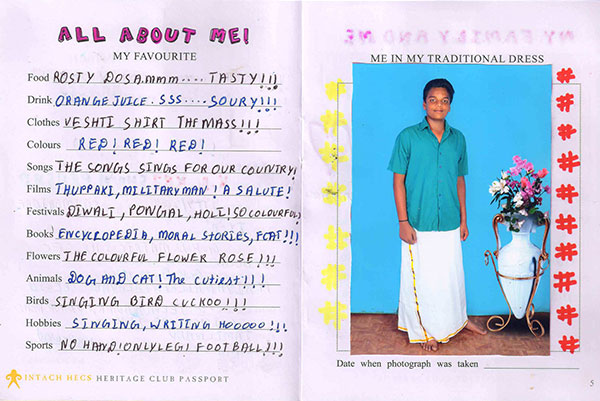 ALL ABOUT ME!
MY FAVOURITE
Food ROSTY DOSA.mmm.... TASTY!!!
Drink ORANGE JUICE. SSS.... SOURY!!!
Clothes VESHTI SHIRT THE MASS!!!
Colours RED! RED! RED!
Songs THE SONGS SINGS FOR OUR COUNTRY!
Films THUPPAKI, MILITARY MAN! A SALUTE!
Festivals DIWALI, PONGAL, HOLI! SO COLOURFUL!
Books ENCYCLOPEDIA, MORAL STORIES, FCAT!!!
Flowers THE COLOURFUL FLOWER ROSE!!!
Animals DOG AND CAT! The cutiest!!!
Birds SINGING BIRD CUCKOO!!!!
Hobbies SINGING, WRITING HOOOOO!!!
Sports NO HAND! ONLY LEG! FOOTBALL!!!
INTACH HECS HERITAGE CLUB PASSPORT
MY FAMILY AND ME
ME IN MY TRADITIONAL DRESS
Date when photograph was taken
5